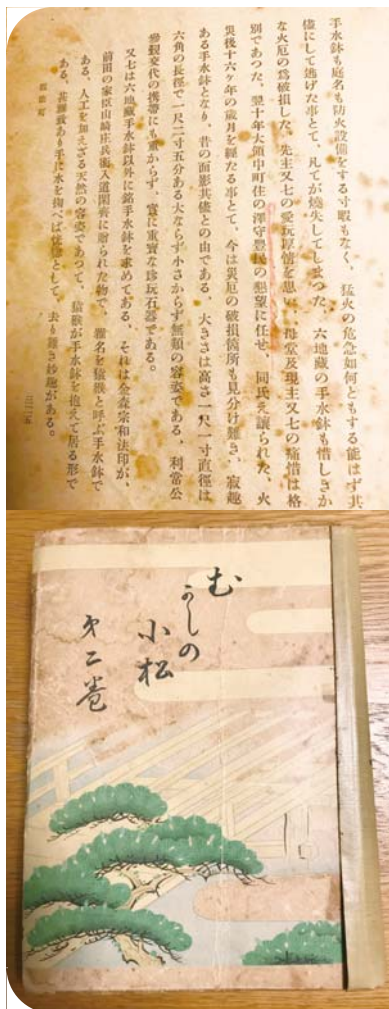 手水鉢も庭名も防火設備をする寸暇もなく、猛火の危急如何ともする能はず其
儘にして逃げた事とて、凡てが燒失してしまつた、六地藏の手水鉢も惜しきか
な火厄の爲破損した、先主又七の愛玩厚情を思い、母堂及現主又七の痛惜は格
別であつた、翌十年大領中町住の澤守豊民の懇望に任せ、同氏え讓られた、火
災後十六ケ年の歳月を經たる事とて、今は災厄の破損箇所も見分け難き、寂趣
ある手水鉢となり、昔の面影其儘との由である、大きさは高さ一尺一寸直徑は
六角の長徑で一尺二寸五分ある大ならず小さからず無類の容姿である、利常公
參覲交代の携帶にも重からず、實に重寳な珍玩石器である。
又七は六地藏手水鉢以外に銘手水鉢を求めてある、それは金森宗和法印が、
前田の家臣山崎庄兵衞入道閑齋に贈られた物で、雅名を猿猴と呼ぶ手水鉢で
ある、人工を加えざる天然の容姿であつて、猿猴が手水鉢を抱えて居る形で
ある、甚雅致あり手に水を掬べば恍惚として、去り難き妙趣がある。
三二五
むかしの
小松
第二巻